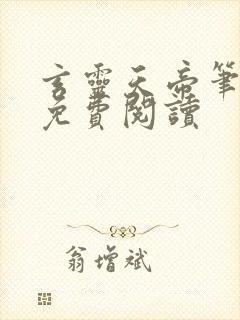 言靈天帝筆
免費閱讀
翁增斌